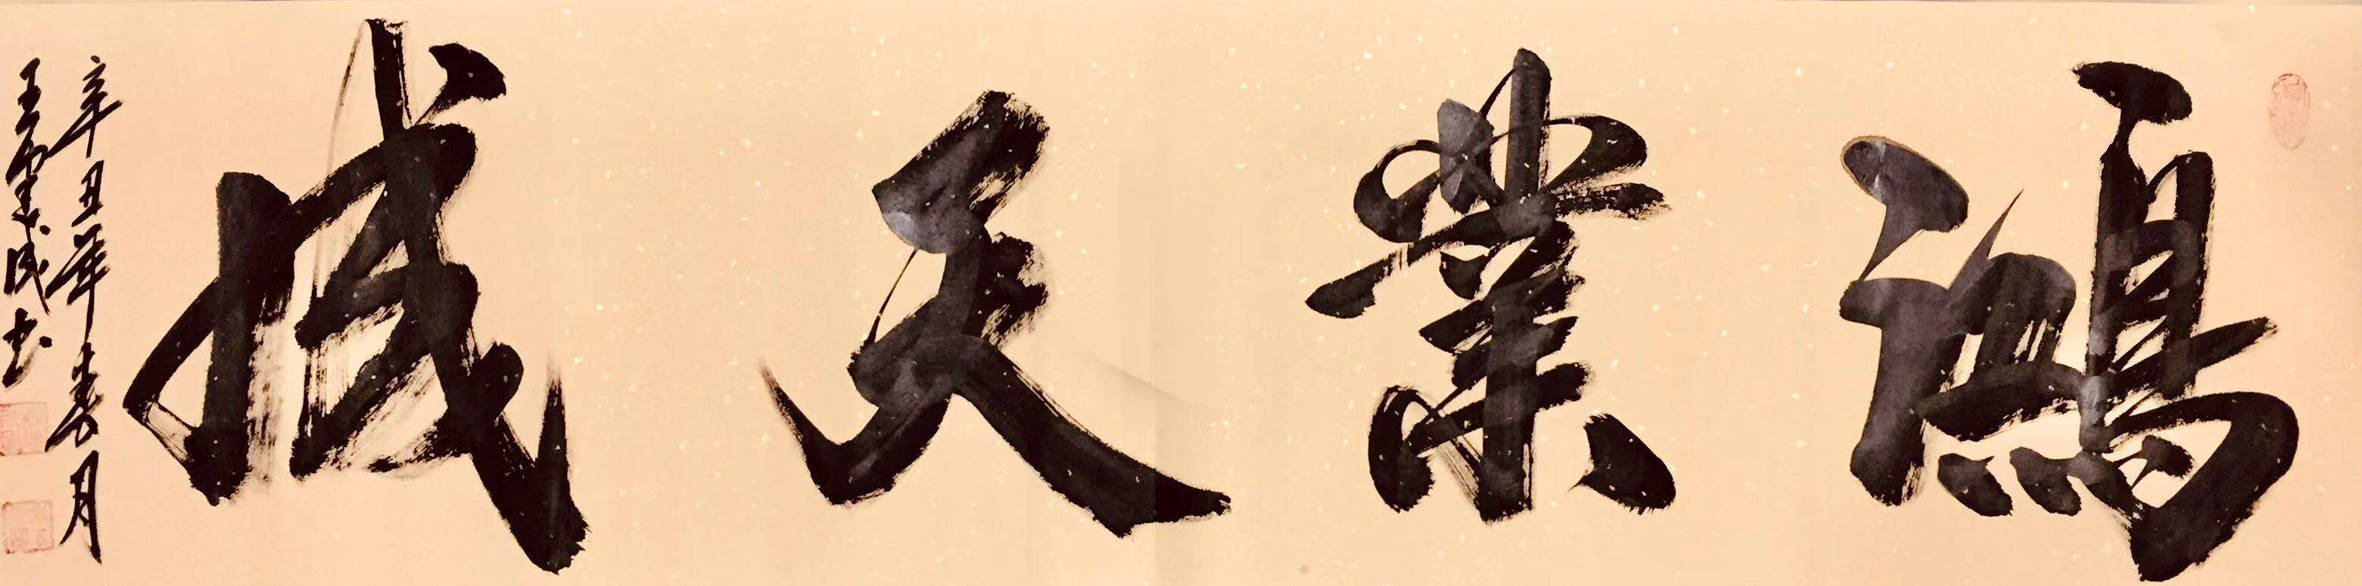 鴻業天成
辛丑年春月
王
成书